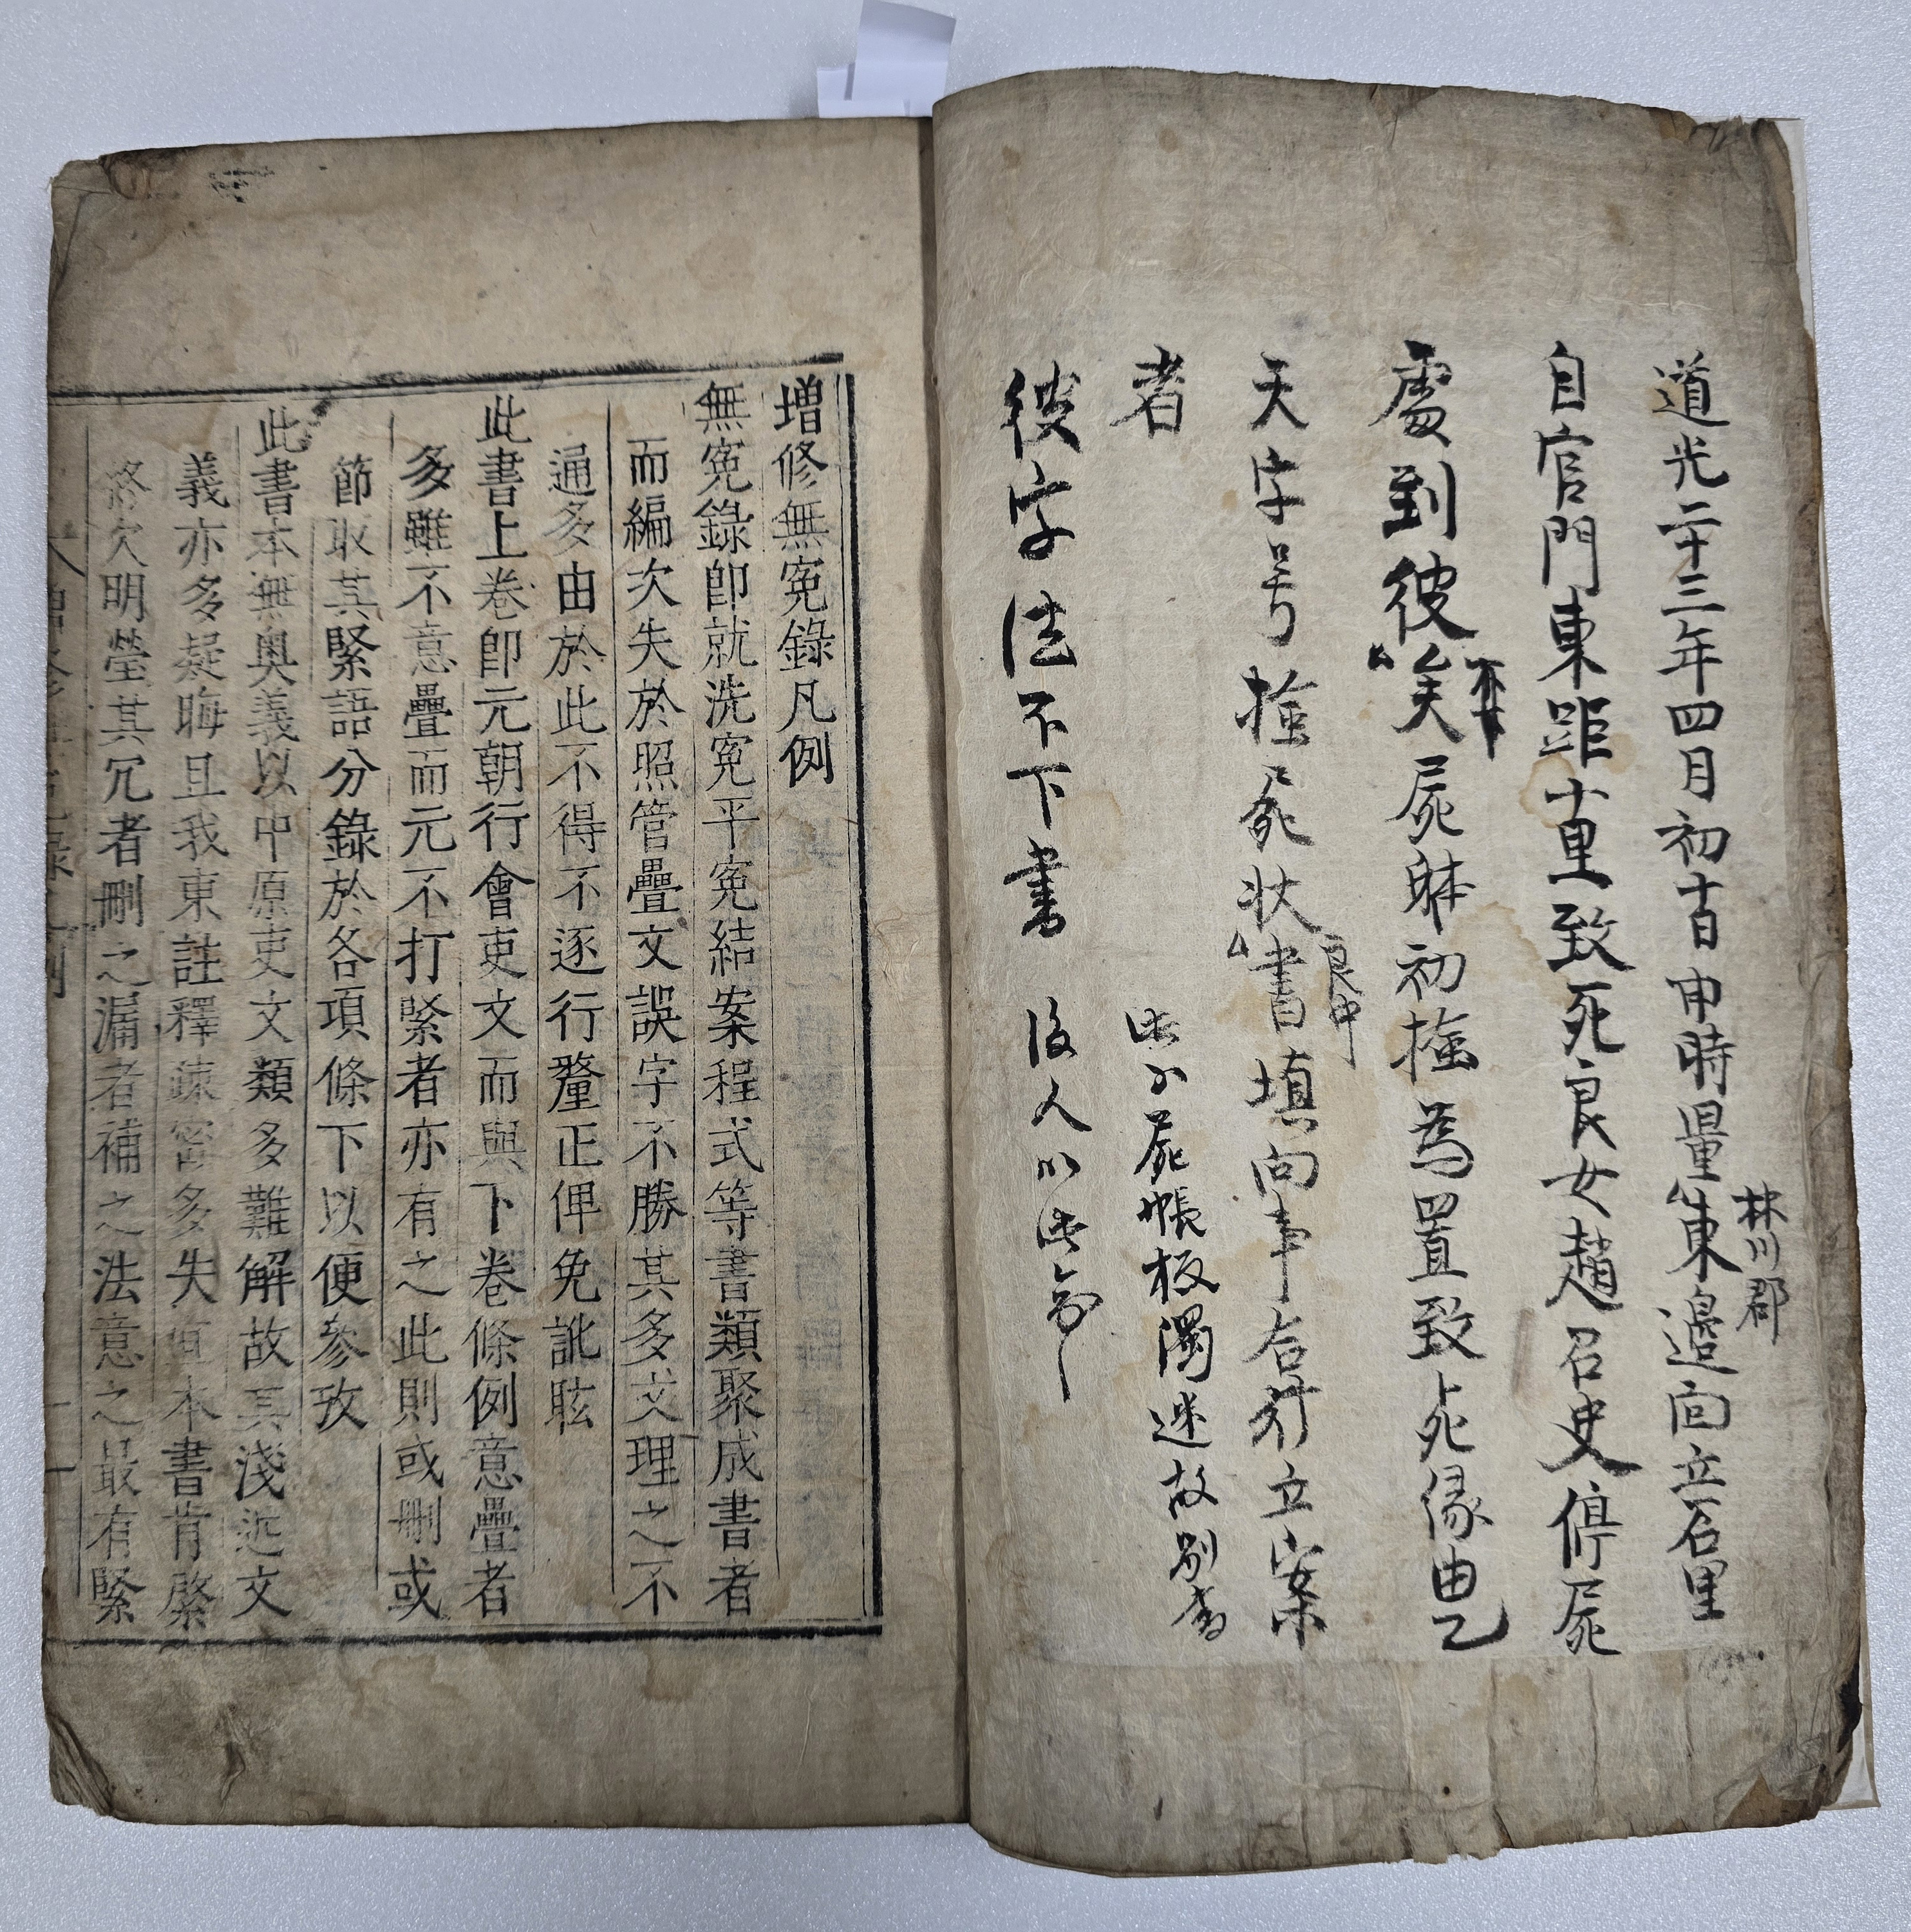 道光二十三年四月初十日申時量林川郡東邊面立石里
自官門東距十里致死良女趙召史停屍
處到彼屍體初檢爲置致死緣由乙
天字号檢屍狀良中書填向事合行立案
者
此外屍帳板濁迷故別書
彼字法不下書 後人以此
增修無寃錄凡例
無寃錄卽就洗寃平寃結案程式等書類聚成書者
而編次失於照管疊文誤字不勝其多文理之不
通多由於此不得不逐行釐正俾免訛眩
此書上卷卽元朝行會吏文而與下卷條例意疊者
多雖不意疊而元不打緊者亦有之此則或刪或
節取其緊語分錄於各項條下以便參攷
此書本無奧義以中原吏文類多難解故其淺近文
義亦多疑晦且我東註釋疎密多失宜本書肯綮
終欠明瑩其冗者刪之漏者補之法意之最有緊